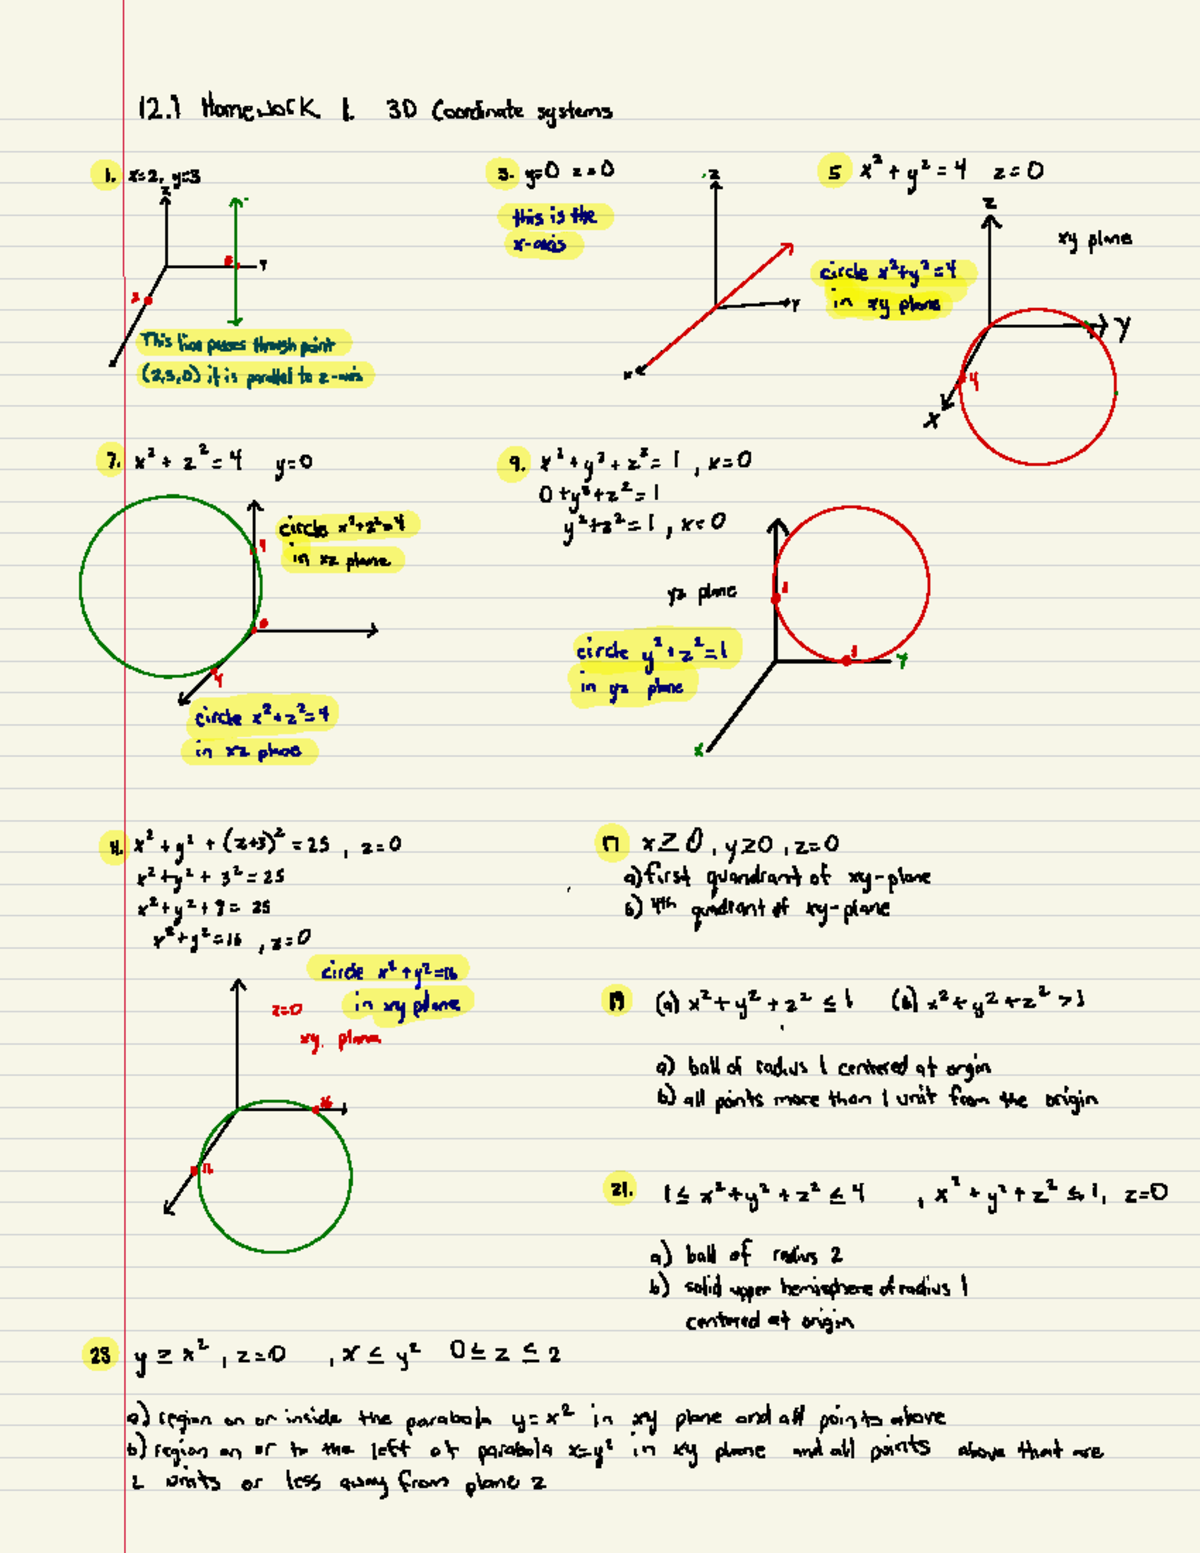 12.1 Homework 1. 3D Coordinate systems
1. x=2, y=3
z
y
3
2
This line passes through point
(2,3,0) it is parallel to z-axis
3. y=0 z=0
this is the
x-axis
z
y
x
5 x² + y² = 4 z=0
z
xy plane
circle x²+y²=4
in xy plane
y
4
x
7. x² + z² = 4 y=0
circle x²+z²=4
in xz plane
4
0
4
circle x²+z²=4
in xz plane
9. x² + y² + z² = 1, x=0
0 + y² + z² = 1
y²+z²=1, x=0
yz plane
1
circle y²+z²=1
in yz plane
1
y
x
11. x² + y² + (z+3)² = 25, z=0
x² + y² + 3² = 25
x² + y² + 9 = 25
x² + y² = 16, z=0
circle x²+y²=16
in xy plane
z=0
xy. plane
16
17 x ≥ 0, y≥0, z=0
a) first quandrant of xy-plane
b) 4th quadrant of xy-plane
19 (a) x² + y² + z² ≤ 1 (b) x² + y² + z² >1
a) ball of radius 1 centered at orgin
b) all points more than 1 unit from the origin
21. 1 ≤ x² + y² + z² ≤ 4 , x² + y² + z² ≤ 1, z=0
a) ball of radius 2
b) solid upper hemisphere of radius 1
centered at origin
23 y ≥ x², z=0 , x ≤ y² 0 ≤ z ≤ 2
a) region on or inside the parabola y=x² in xy plane and all points above
b) region on or to the left of parabola x=y² in xy plane and all points above that are
2 units or less away from plane z